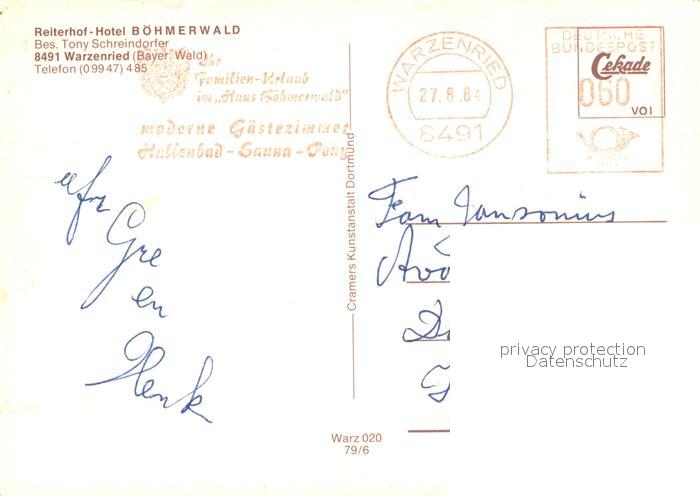 Reiterhof-Hotel BÖHMERWALD
Bes. Tony Schreindorfer
8491 Warzenried (Bayer. Wald)
Telefon (09947) 485
Ihr
Familien-Urlaub
im „Haus Böhmerwald"
moderne Gästezimmer
Hallenbad - Sauna - Pony
WARZENRIED
27.8.84
8491
DEUTSCHE
BUNDESPOST
Cekade
060
VOI
afz
Gre
en
Henk
Cramers Kunstanstalt Dortmund
Fam Jansonius
privacy protection
Datenschutz
Warz 020
79/6